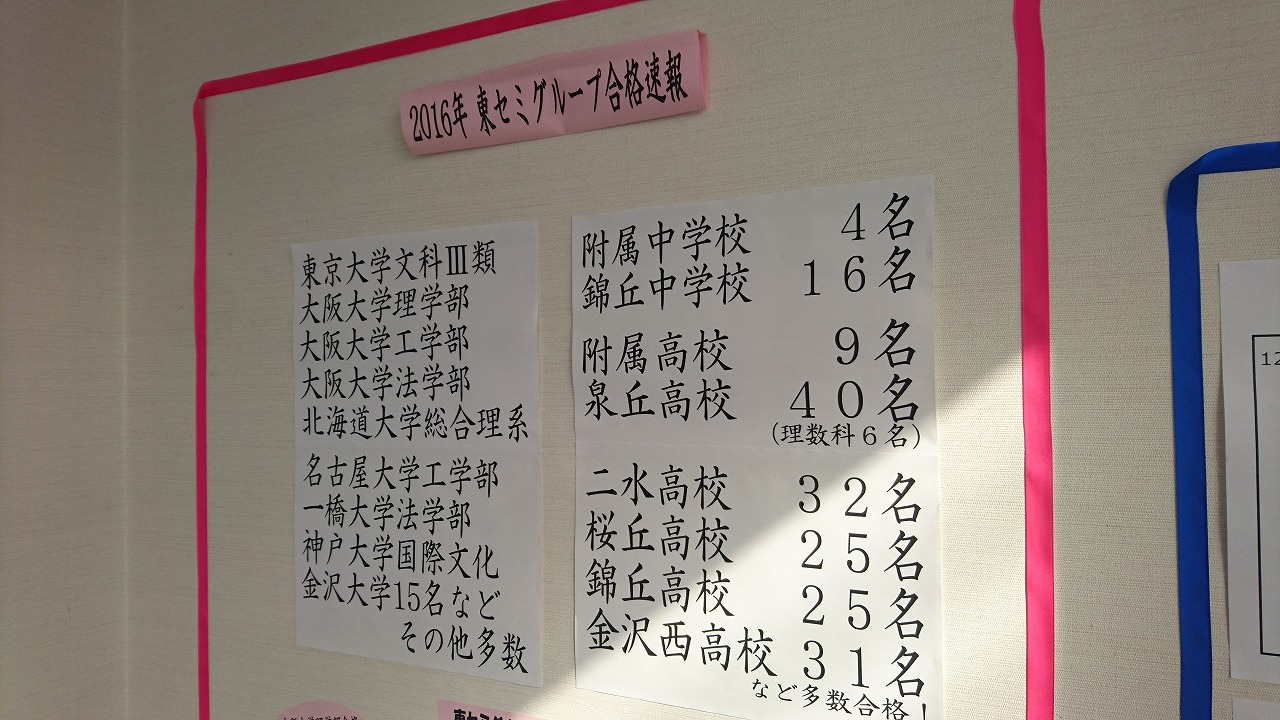 2016年 東セミグループ合格速報
東京大学文科Ⅲ類
大阪大学理学部
大阪大学工学部
大阪大学法学部
北海道大学総合理系
名古屋大学工学部
一橋大学法学部
神戸大学国際文化
金沢大学15名など
その他多数
附属中学校 4名
錦丘中学校 16名
附属高校 9名
泉丘高校 40名
（理数科６名）
二水高校 32名
桜丘高校 25名
錦丘高校 25名
金沢西高校 31名
など多数合格！
12